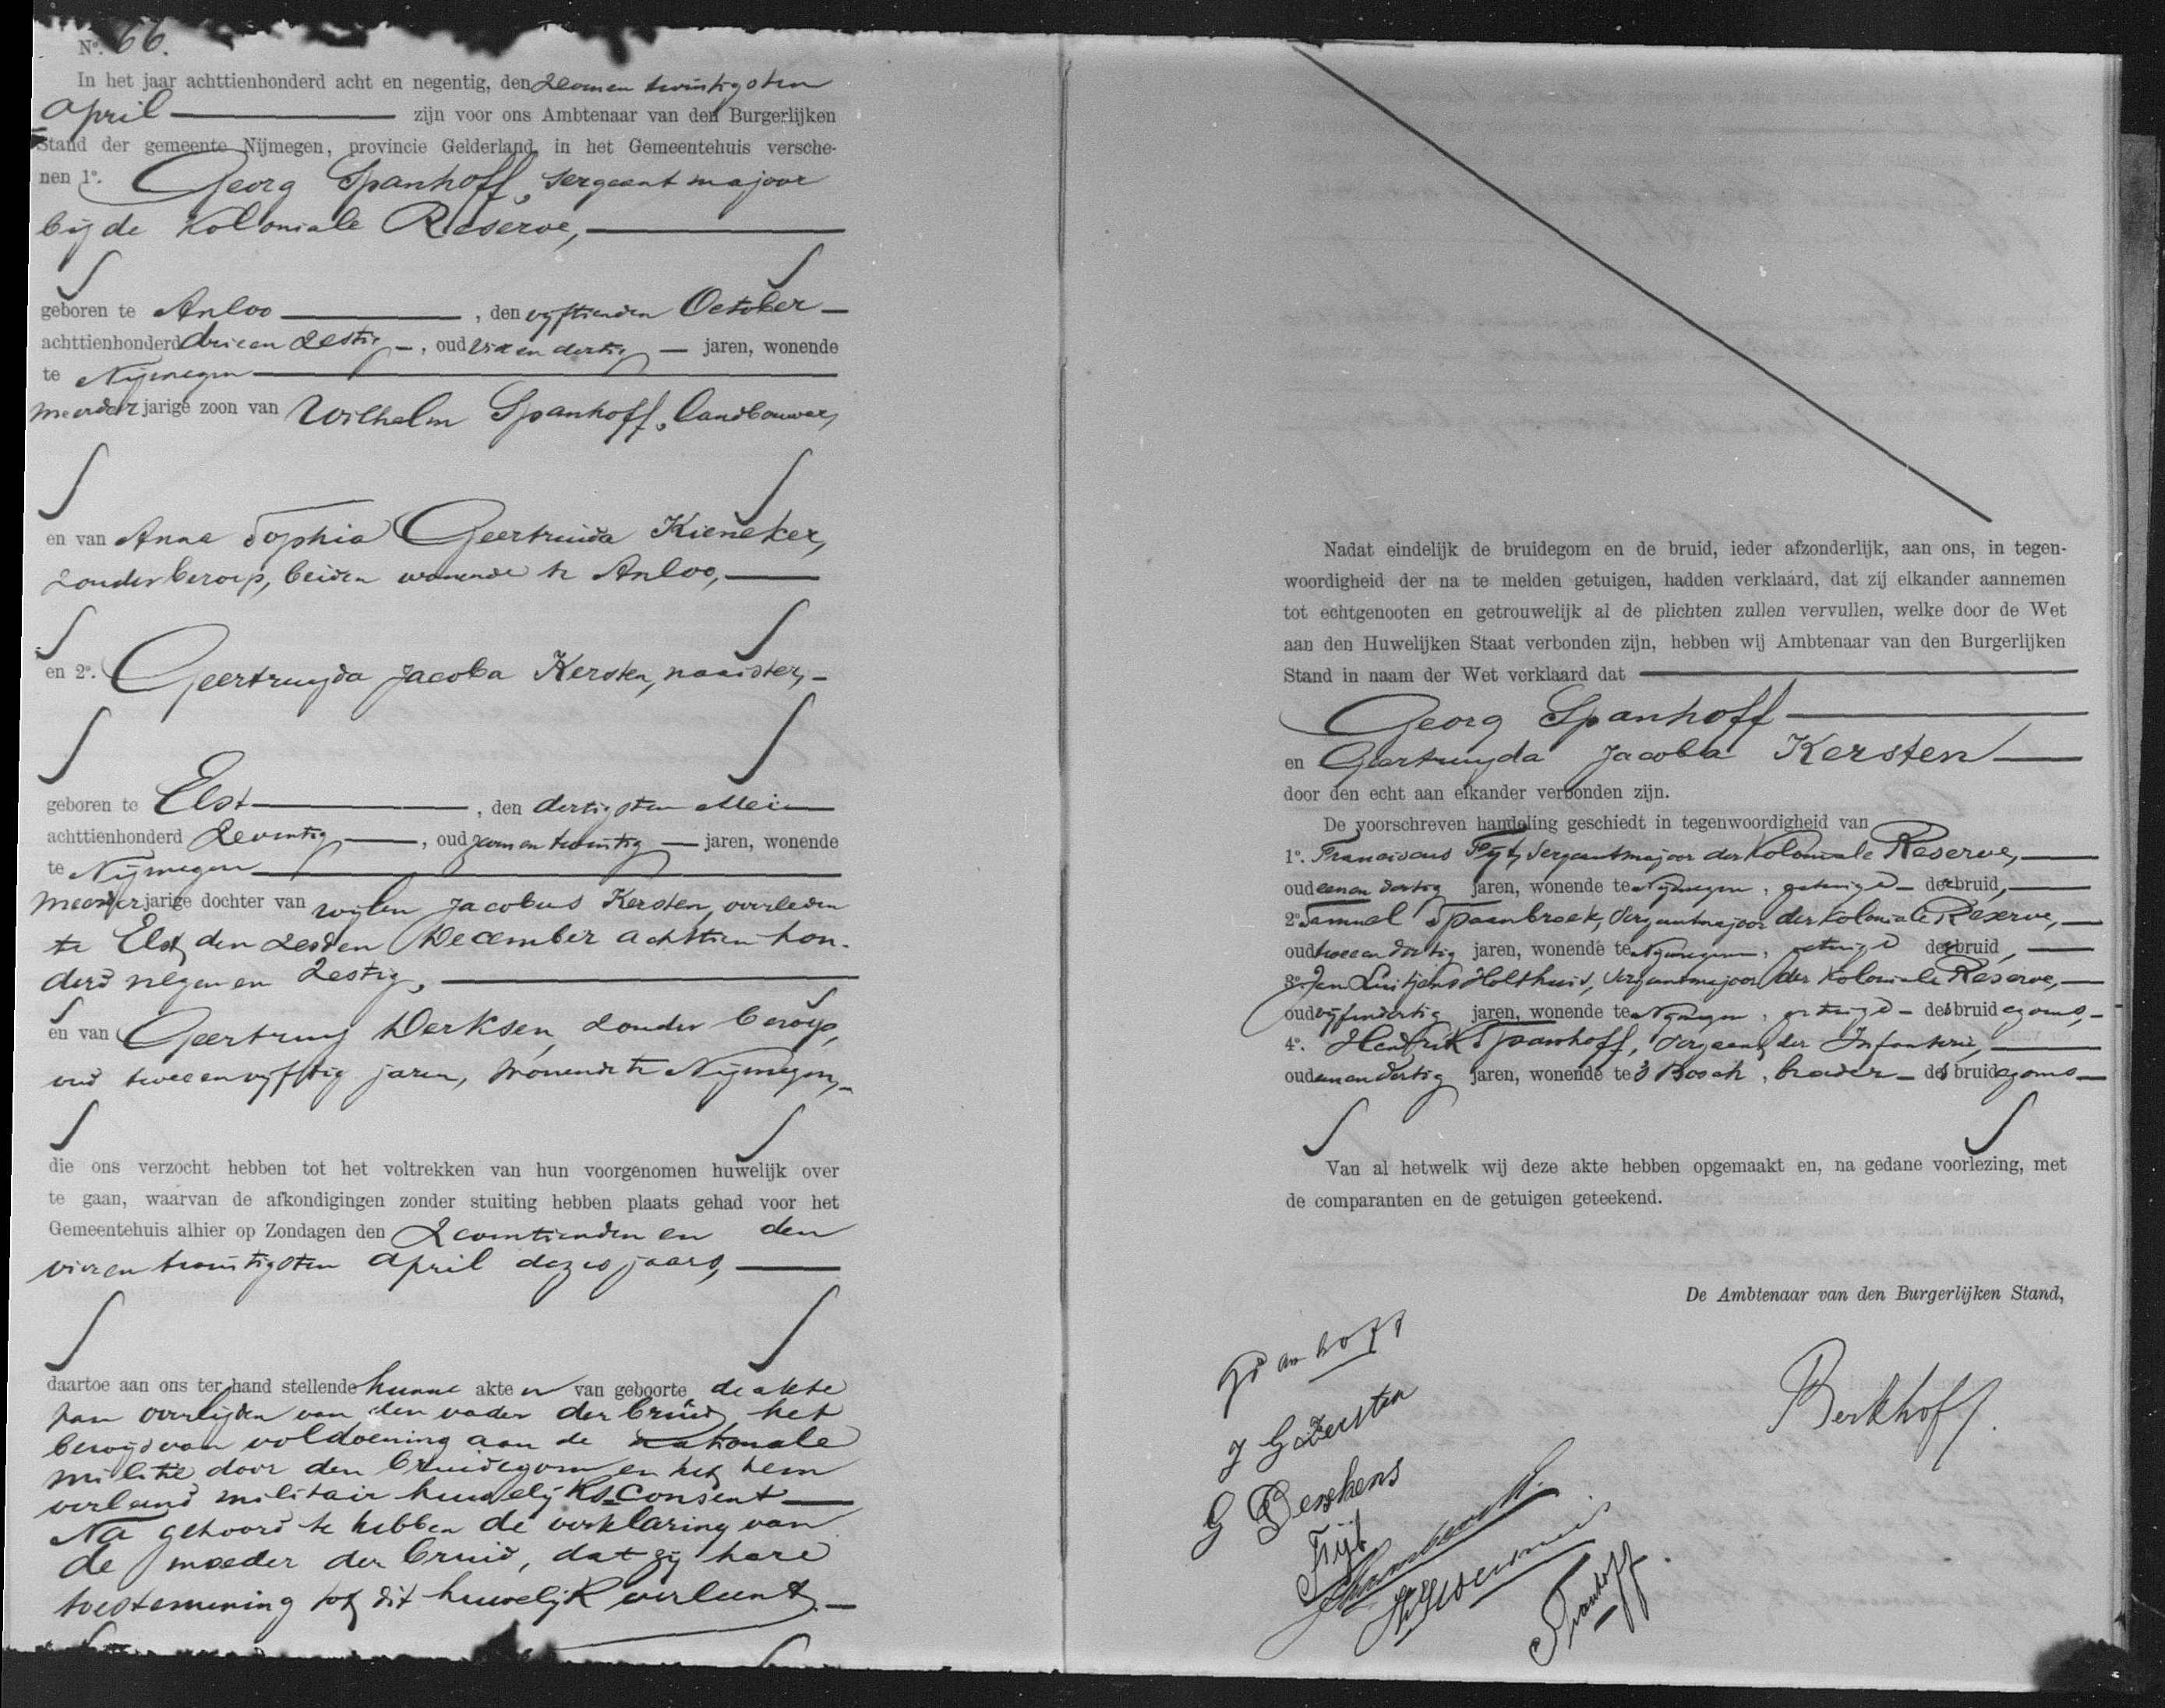 No. 66.
In het jaar achttienhonderd acht en negentig, den zeven en twintigsten
April zijn voor ons Ambtenaar van den Burgerlijken
Stand der gemeente Nijmegen, provincie Gelderland, in het Gemeentehuis versche-
nen 1o. Georg Spanhoff, sergeant majoor
bij de Koloniale Reserve,
geboren te Anloo, den vijftienden October
achttienhonderd drie en zestig, oud vier en dertig jaren, wonende
te Nijmegen
meerderjarige zoon van Wilhelm Spanhoff, landbouwer,
en van Anna Sophia Geertruida Kieneker,
zonder beroep, beiden wonende te Anloo,
en 2o. Geertruyda Jacoba Kersten, naaister,
geboren te Elst, den dertigsten Mei
achttienhonderd zeventig, oud zeven en twintig jaren, wonende
te Nijmegen
meerderjarige dochter van wijlen Jacobus Kersten, overleden
te Elst, den zesden December achttien hon-
derd negen en zestig,
en van Geertruij Derksen, zonder beroep,
oud twee en vijftig jaren, wonende te Nijmegen,
die ons verzocht hebben tot het voltrekken van hun voorgenomen huwelijk over
te gaan, waarvan de afkondigingen zonder stuiting hebben plaats gehad voor het
Gemeentehuis alhier op Zondagen den zeventienden en den
vier en twintigsten April dezes jaars,
daartoe aan ons ter hand stellende hunne akten van geboorte, de akte
van overlijden van den vader der bruid, het
bewijs van voldoening aan de nationale
militie door den bruidegom en het hem
verleend militair huwelijks-consent
Na gehoord te hebben de verklaring van
de moeder der bruid, dat zij hare
toestemming tot dit huwelijk verleent
Nadat eindelijk de bruidegom en de bruid, ieder afzonderlijk, aan ons, in tegen-
woordigheid der na te melden getuigen, hadden verklaard, dat zij elkander aannemen
tot echtgenooten en getrouwelijk al de plichten zullen vervullen, welke door de Wet
aan den Huwelijken Staat verbonden zijn, hebben wij Ambtenaar van den Burgerlijken
Stand in naam der Wet verklaard dat
Georg Spanhoff
en Geertruyda Jacoba Kersten
door den echt aan elkander verbonden zijn.
De voorschreven handeling geschiedt in tegenwoordigheid van
1o. Franciscus Fijt, Sergeantmajoor der Koloniale Reserve,
oud een en dertig jaren, wonende te Nijmegen, getuige der bruid,
2o. Samuel Spaanbroek, Sergeantmajoor der Koloniale Reserve,
oud twee en dertig jaren, wonende te Nijmegen, getuige der bruid,
3o. Jan Luitjens Holthuis, Sergeantmajoor der Koloniale Reserve,
oud vijf en dertig jaren, wonende te Nijmegen, getuige des bruidegoms,
4o. Hendrik Spanhoff, Sergeant der Infanterie,
oud een en dertig jaren, wonende te 's Bosch, broeder des bruidegoms
Van al hetwelk wij deze akte hebben opgemaakt en, na gedane voorlezing, met
de comparanten en de getuigen geteekend.
De Ambtenaar van den Burgerlijken Stand,
Spanhoff
J G Kersten
Berkhoff.
G Derksens
Fijt
Spanhoff.